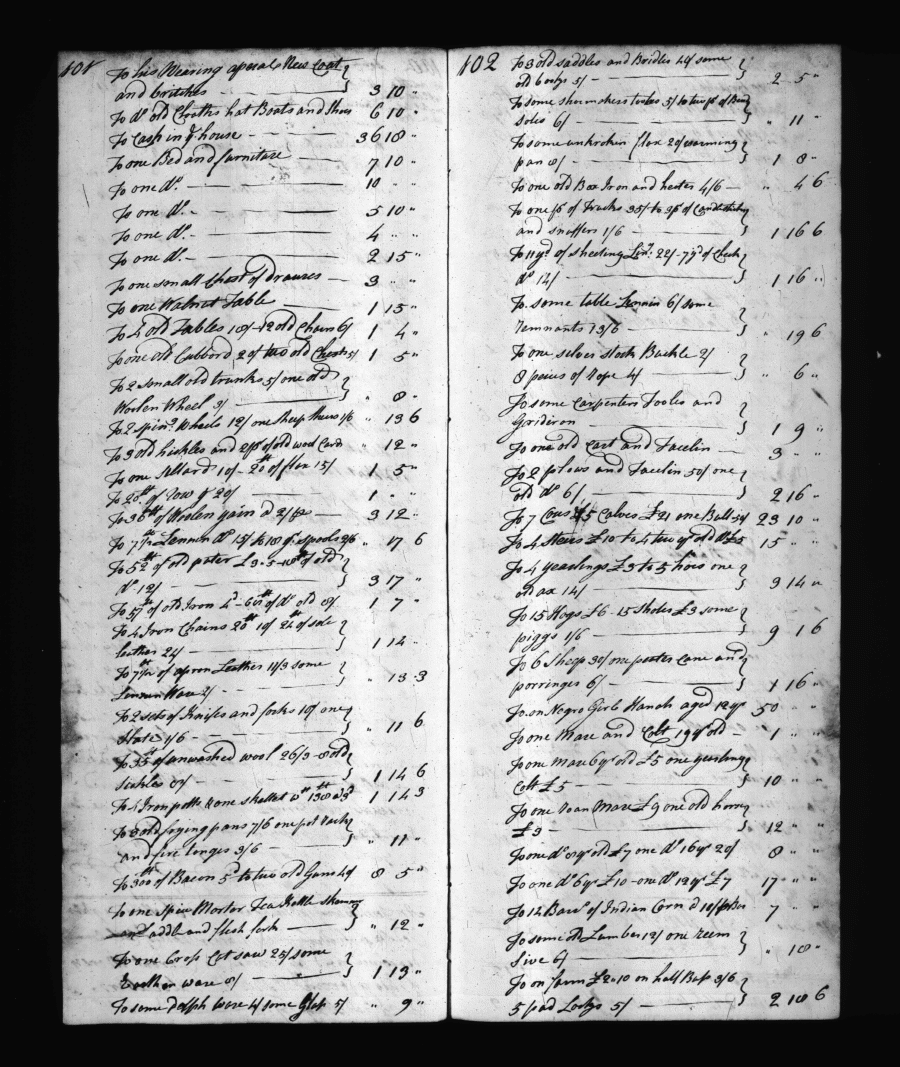 101
To his Wearing aperal New Coat
and britches 3 10 "
To do old Cloaths hat Boats and Shoes 6 10 "
To Cash in ye house 36 18 "
To one Bed and furniture 7 10 "
To one do. 10 " "
To one do. 5 10 "
To one do. 4 " "
To one do. 2 15 "
To one small Chest of drawses 3 " "
To one Walnut Table 1 15 "
To 4 old Tables 18/ 12 old Chairs 6/ 1 4 "
To one old Cubbord 20/ two old Chests 5/ 1 5 "
To 2 small old trunks 5/ one old
Woolen Wheel 3/ " 8 "
To 2 sping Wheels 12/ one Sheep Shears 1/6 " 13 6
To 3 old hickles and 2 ps of old wool Card " 12 "
To one Stillard 10/ 20 lb of flax 15/ 1 5 "
To 20 lb of Tow ye 20/ 1 " "
To 36 lb of Woolen yarn d 2/ 3 12 "
To 7 lb Lennen do 15/ to 18 of spools 2/6 " 17 6
To 52 lb of old puter £3-5 of old
do 12/ 3 17 "
To 57 lb of old Iron of do old 8/ 1 7 "
To 4 Iron Chains 20/ 10/ 24 of sole
leather 24/ 1 14 "
To 7 lb of apron Leather 11/3 some
Lennen Ware 2/ " 13 3
To 2 sets of Knifes and forks 10/ one
Slate 1/6 " 11 6
To 35 lb of unwashed wool 26/3 8 old
sickles 8/ 1 14 6
To 4 Iron potts & one skellet wt 138 d 3d 1 14 3
To 3 old frying pans 7/6 one pot rack
and fire tonges 3/6 " 11 "
To 300 lb of Bacon 5d to two old Guns 40/ 8 5 "
To one Spice Morter Tea Kettle skimmer
and Ladle and flesh fork " 12 "
To one Cross Cut saw 25/ some
Earthen ware 8/ 1 13 "
To some Delph ware 4/ some Glass 5/ " 9 "
102
To 3 old saddles and Bridles 40/ some
old bodys 5/ 2 5 "
To some shoemakers tooles 5/ to two ps of Bend
soles 6/ " 11 "
To some unbroken flax 20/ warming
pan 8/ 1 8 "
To one old Box Iron and heeter 4/6 " 4 6
To one ps of Trucks 35/ to 3 ps of Candlesticks
and snuffers 1/6 1 16 6
To 11 yd of sheeting Linn. 22/ 7 yd of Check
do 14/ 1 16 "
To some table Lennin 6/ some
remnants 13/6 " 19 6
To one silver stock Buckle 2/
8 peices of rope 4/ " 6 "
To some Carpenters Tooles and
Gridiron 1 9 "
To one old Cart and Tacelin 3 " "
To 2 plows and Tacelin 50/ one
old do 6/ 2 16 "
To 7 Cows & 5 Calves £21 one Bull 50/ 23 10 "
To 4 Steers £10 to 4 two yr old do £5 15 " "
To 4 yearlings £3 to 5 hoes one
old ax 14/ 3 14 "
To 15 Hogs £6 15 Shotes £3 some
piggs 1/6 9 1 6
To 6 Sheep 30/ one puter Cane and
porringes 6/ 1 16 "
To on Negro Girl Hanah aged 12 yr 50 " "
To one Mare and Colt 19 yr old 1 " "
To one Mare 6 yr old £5 one yearling
Colt £5 10 " "
To one roan Mare £9 one old horse
£3 12 " "
To one do 8 yr old £7 one do 16 yr 20/ 8 " "
To one do 6 yr £10 one do 12 yr £7 17 " "
To 14 Barrs of Indian Corn d 10/ Bar 7 " "
To some old Lumber 12/ one reem
Sive 6/ " 18 "
To on £2-10 on half Bus 3/6
5 pad Locks 5/ 2 18 6